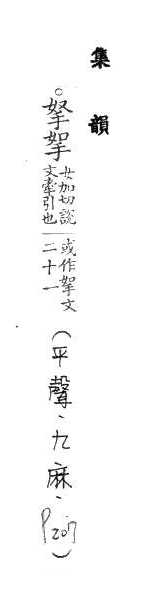 集韻
○拏挐女加切說文牽引也或作挐文二十一(平聲、九麻、P207)